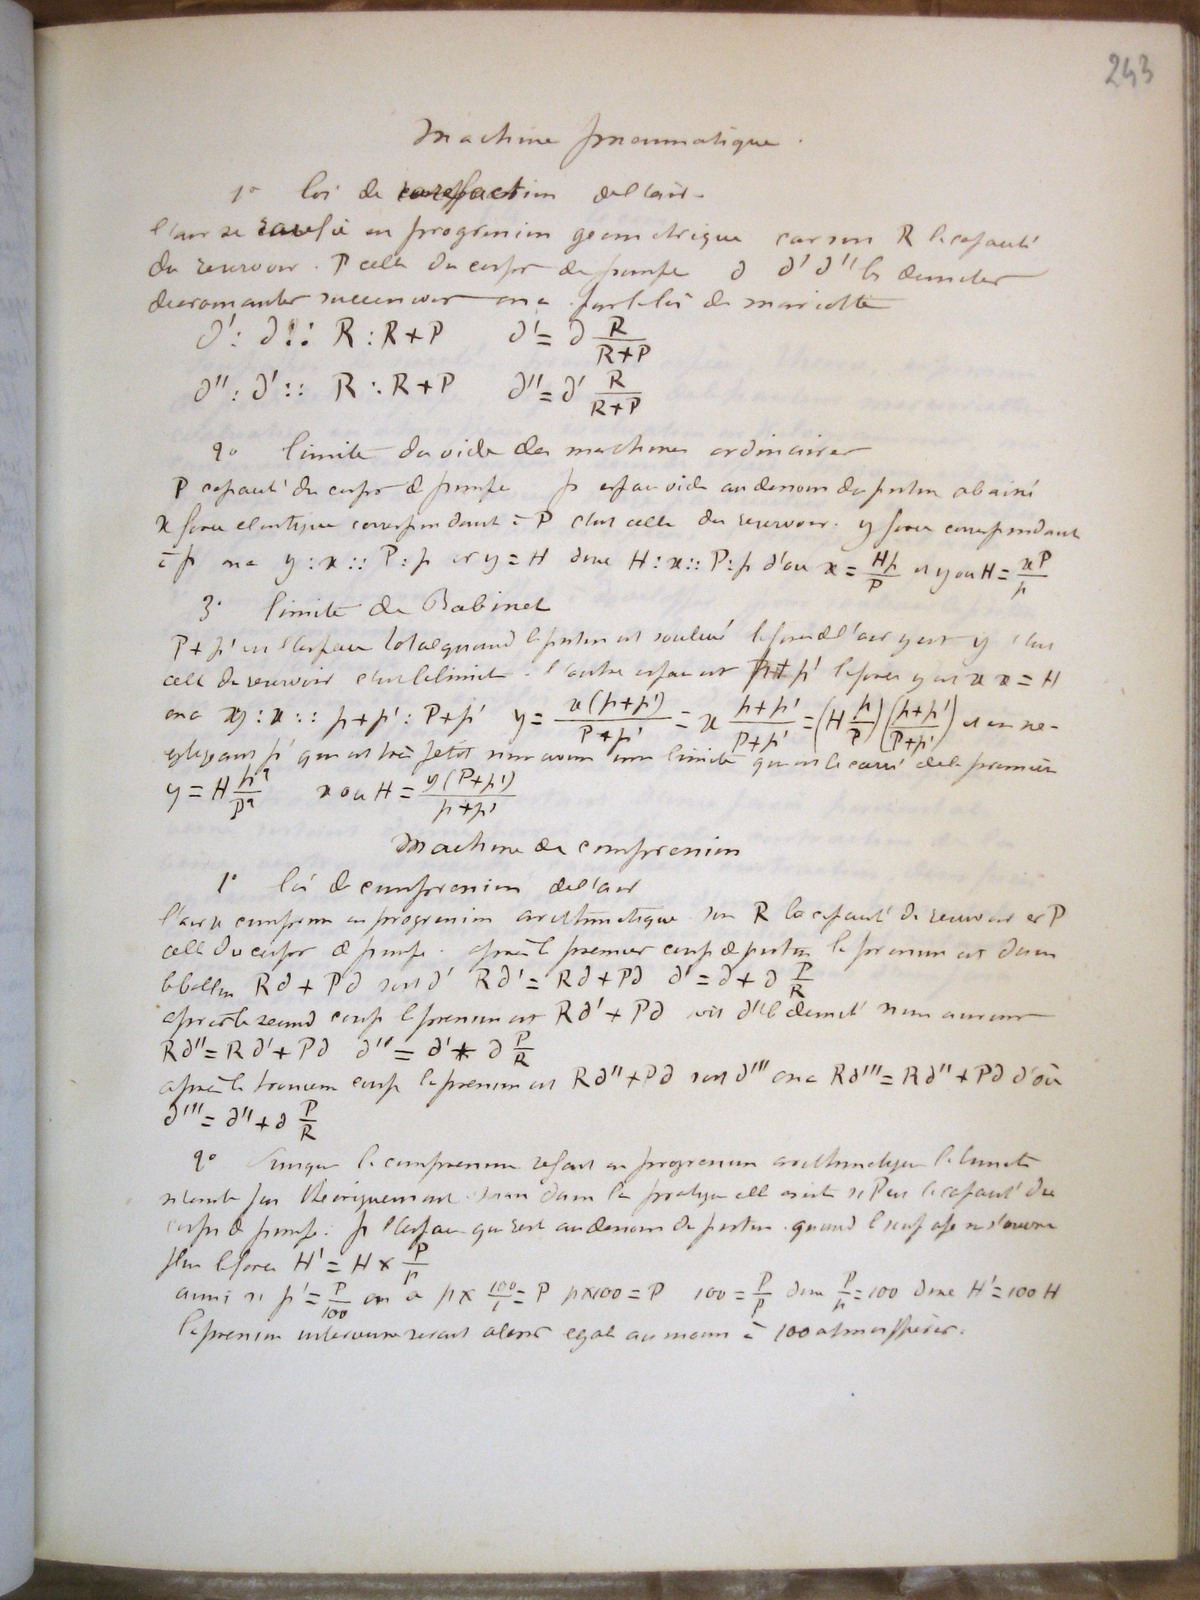 243
Machine pneumatique.
1° loi de rarefaction de l'air.
l'air se rarefie en progression geometrique car son R la capacité
du reservoir. P celle du corps de pompe ∂ ∂' ∂'' les densites
decroissantes successives on a par la loi de mariotte
∂' : ∂ :: R : R+P ∂' = ∂ R/(R+P)
∂'' : ∂' :: R : R+P ∂'' = ∂' R/(R+P)
2° limite du vide des machines ordinaires
P capacité du corps de pompe p espace vide au dessous du piston abaissé
x force elastique correspondant à P c'est celle du reservoir. y force correspondant
à p on a y : x :: P : p or y = H donc H : x :: P : p d'ou x = Hp/P et y ou H = xP/p
3° limite de Babinet
P+p' est l'espace total quand le piston est soulevé la force de l'air y est y c'est
celle du reservoir c'est la limite. l'autre espace est p+p' la force y est x x = H
on a y : x :: p+p' : P+p' y = x(p+p')/(P+p') = x (p+p')/(P+p') = (H p/P) ((p+p')/(P+p')) et en ne-
gligeant p' qui est très petit nous avons une limite qui est le carré de la premiere
y = H p²/P² x ou H = y(P+p')/(p+p')
Machine de compression
1° loi de compression de l'air
l'air se comprime en progression arithmetique son R la capacité du reservoir et P
celle du corps de pompe. après le premier coup de piston la pression est dans
le ballon R∂ + P∂ soit ∂' R∂' = R∂ + P∂ ∂' = ∂ + ∂ P/R
après le second coup la pression est R∂' + P∂ soit ∂'' la densité nous aurons
R∂'' = R∂' + P∂ ∂'' = ∂' + ∂ P/R
après le troisieme coup la pression est R∂'' + P∂ soit ∂''' on a R∂''' = R∂'' + P∂ d'où
∂''' = ∂'' + ∂ P/R
2° Puisque la compression se fait en progression arithmetique la limite
n'existe pas theoriquement. mais dans la pratique elle existe si P est la capacité du
corps de pompe. p l'espace qui reste au dessous du piston. quand la soupape ne s'ouvre
plus la force H' = H × P/p
ainsi si p = P/100 on a p × 100/1 = P p×100 = P 100 = P/p donc P/p = 100 donc H' = 100 H
la pression interieure serait alors egale au moins à 100 atmospheres.